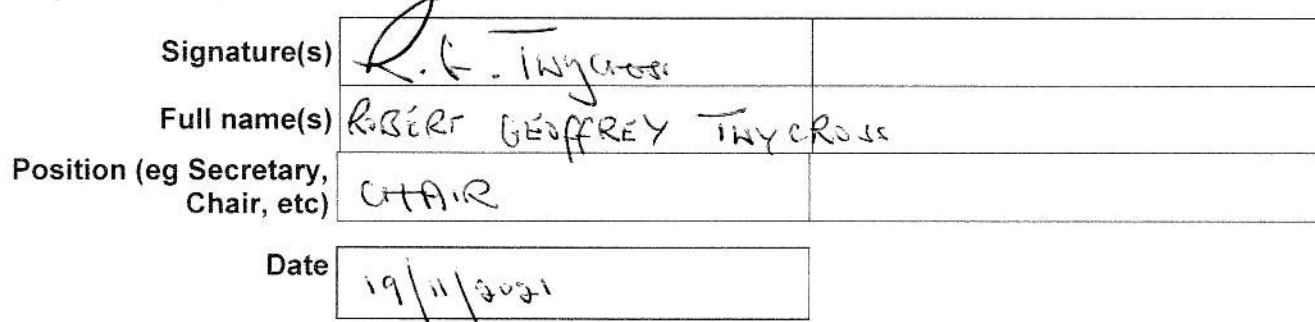 Signature(s) R. G. Twycross
Full name(s) ROBERT GEOFFREY TWYCROSS
Position (eg Secretary,
Chair, etc) CHAIR
Date 19/11/2021